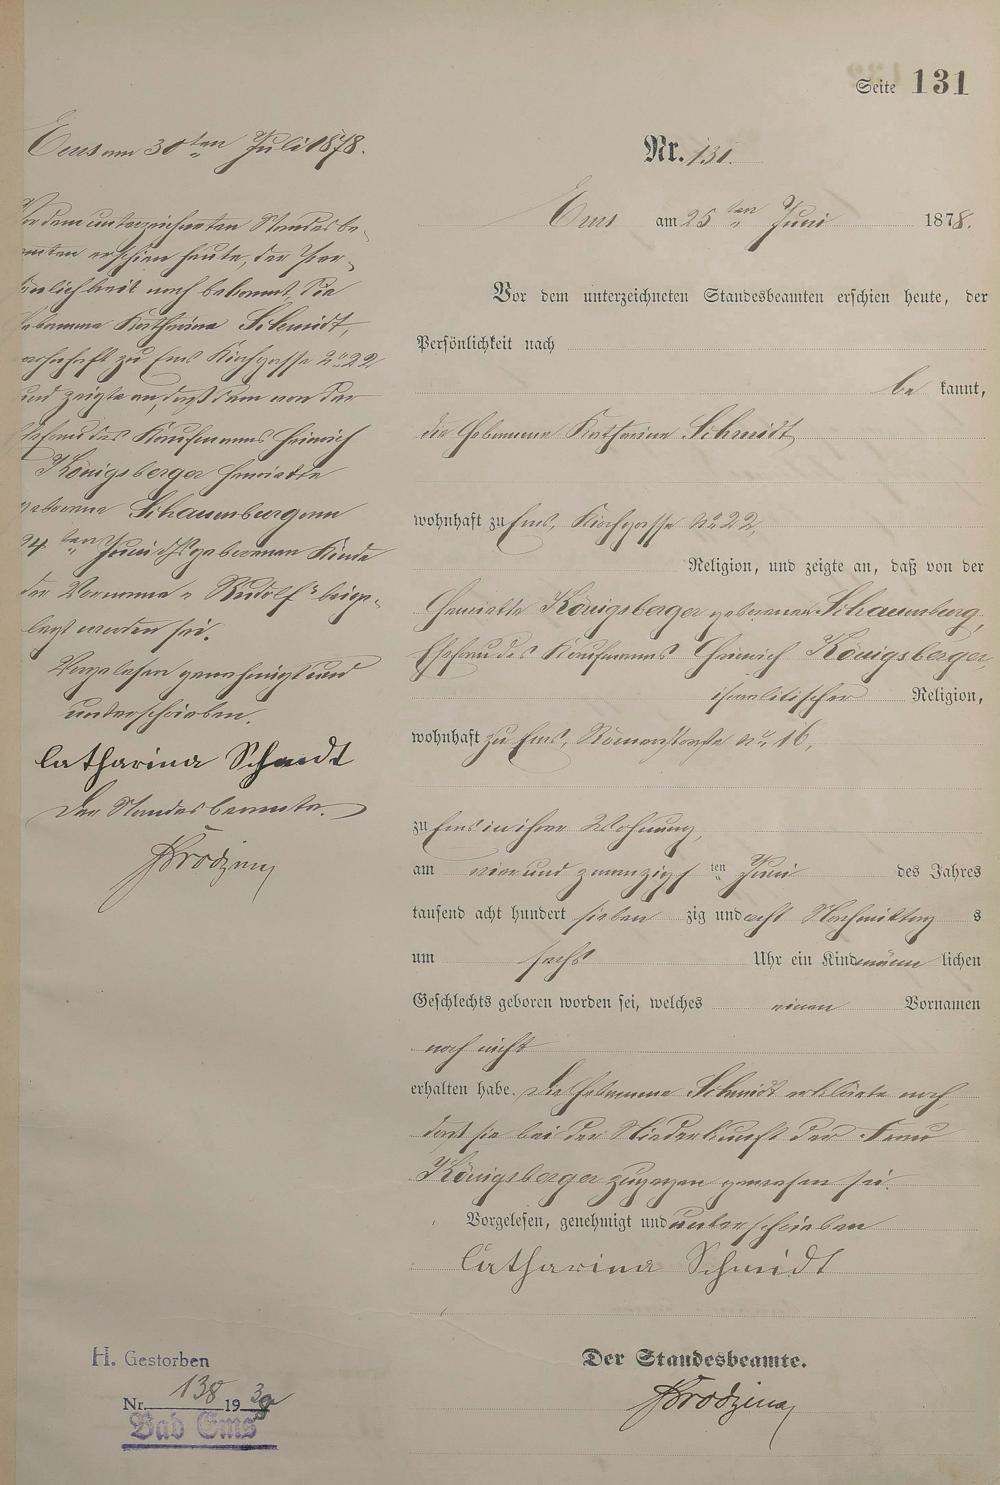 Seite 131
Ems am 30ten Juli 1878.
Vor dem unterzeichneten Standesbe-
amten erschien heute, der Per-
sönlichkeit nach bekannt, die
Hebamme Katharina Schmidt,
wohnhaft zu Ems Kirchgasse No 22
und zeigte an, daß dem von der
Ehefrau des Kaufmanns Heinrich
Königsberger Henriette
geborene Schaumburg am
24ten Juni d/Js geborenen Kinde
der Vorname "Rudolf" beige-
legt worden sei.
Vorgelesen genehmigt und
unterschrieben.
Catharina Schmidt
Der Standesbeamte.
Brodzina
H. Gestorben
Nr. 138 1939
Bad Ems
Nr. 131.
Ems am 25ten Juni 1878.
Vor dem unterzeichneten Standesbeamten erschien heute, der
Persönlichkeit nach
be kannt,
die Hebamme Katharina Schmidt
wohnhaft zu Ems, Kirchgasse No 22,
Religion, und zeigte an, daß von der
Henriette Königsberger geborenen Schaumburg,
Ehefrau des Kaufmanns Heinrich Königsberger,
israelitischer Religion,
wohnhaft zu Ems, Römerstraße No 16,
zu Ems in ihrer Wohnung,
am vier und zwanzigsten Juni des Jahres
tausend acht hundert sieben zig und acht Nachmittag s
um sechs Uhr ein Kind männ lichen
Geschlechts geboren worden sei, welches einen Vornamen
noch nicht
erhalten habe. Die Hebamme Schmidt erklärte noch,
daß sie bei der Niederkunft der Frau
Königsberger zugegen gewesen sei.
Vorgelesen, genehmigt und unterschrieben
Catharina Schmidt
Der Standesbeamte.
Brodzina